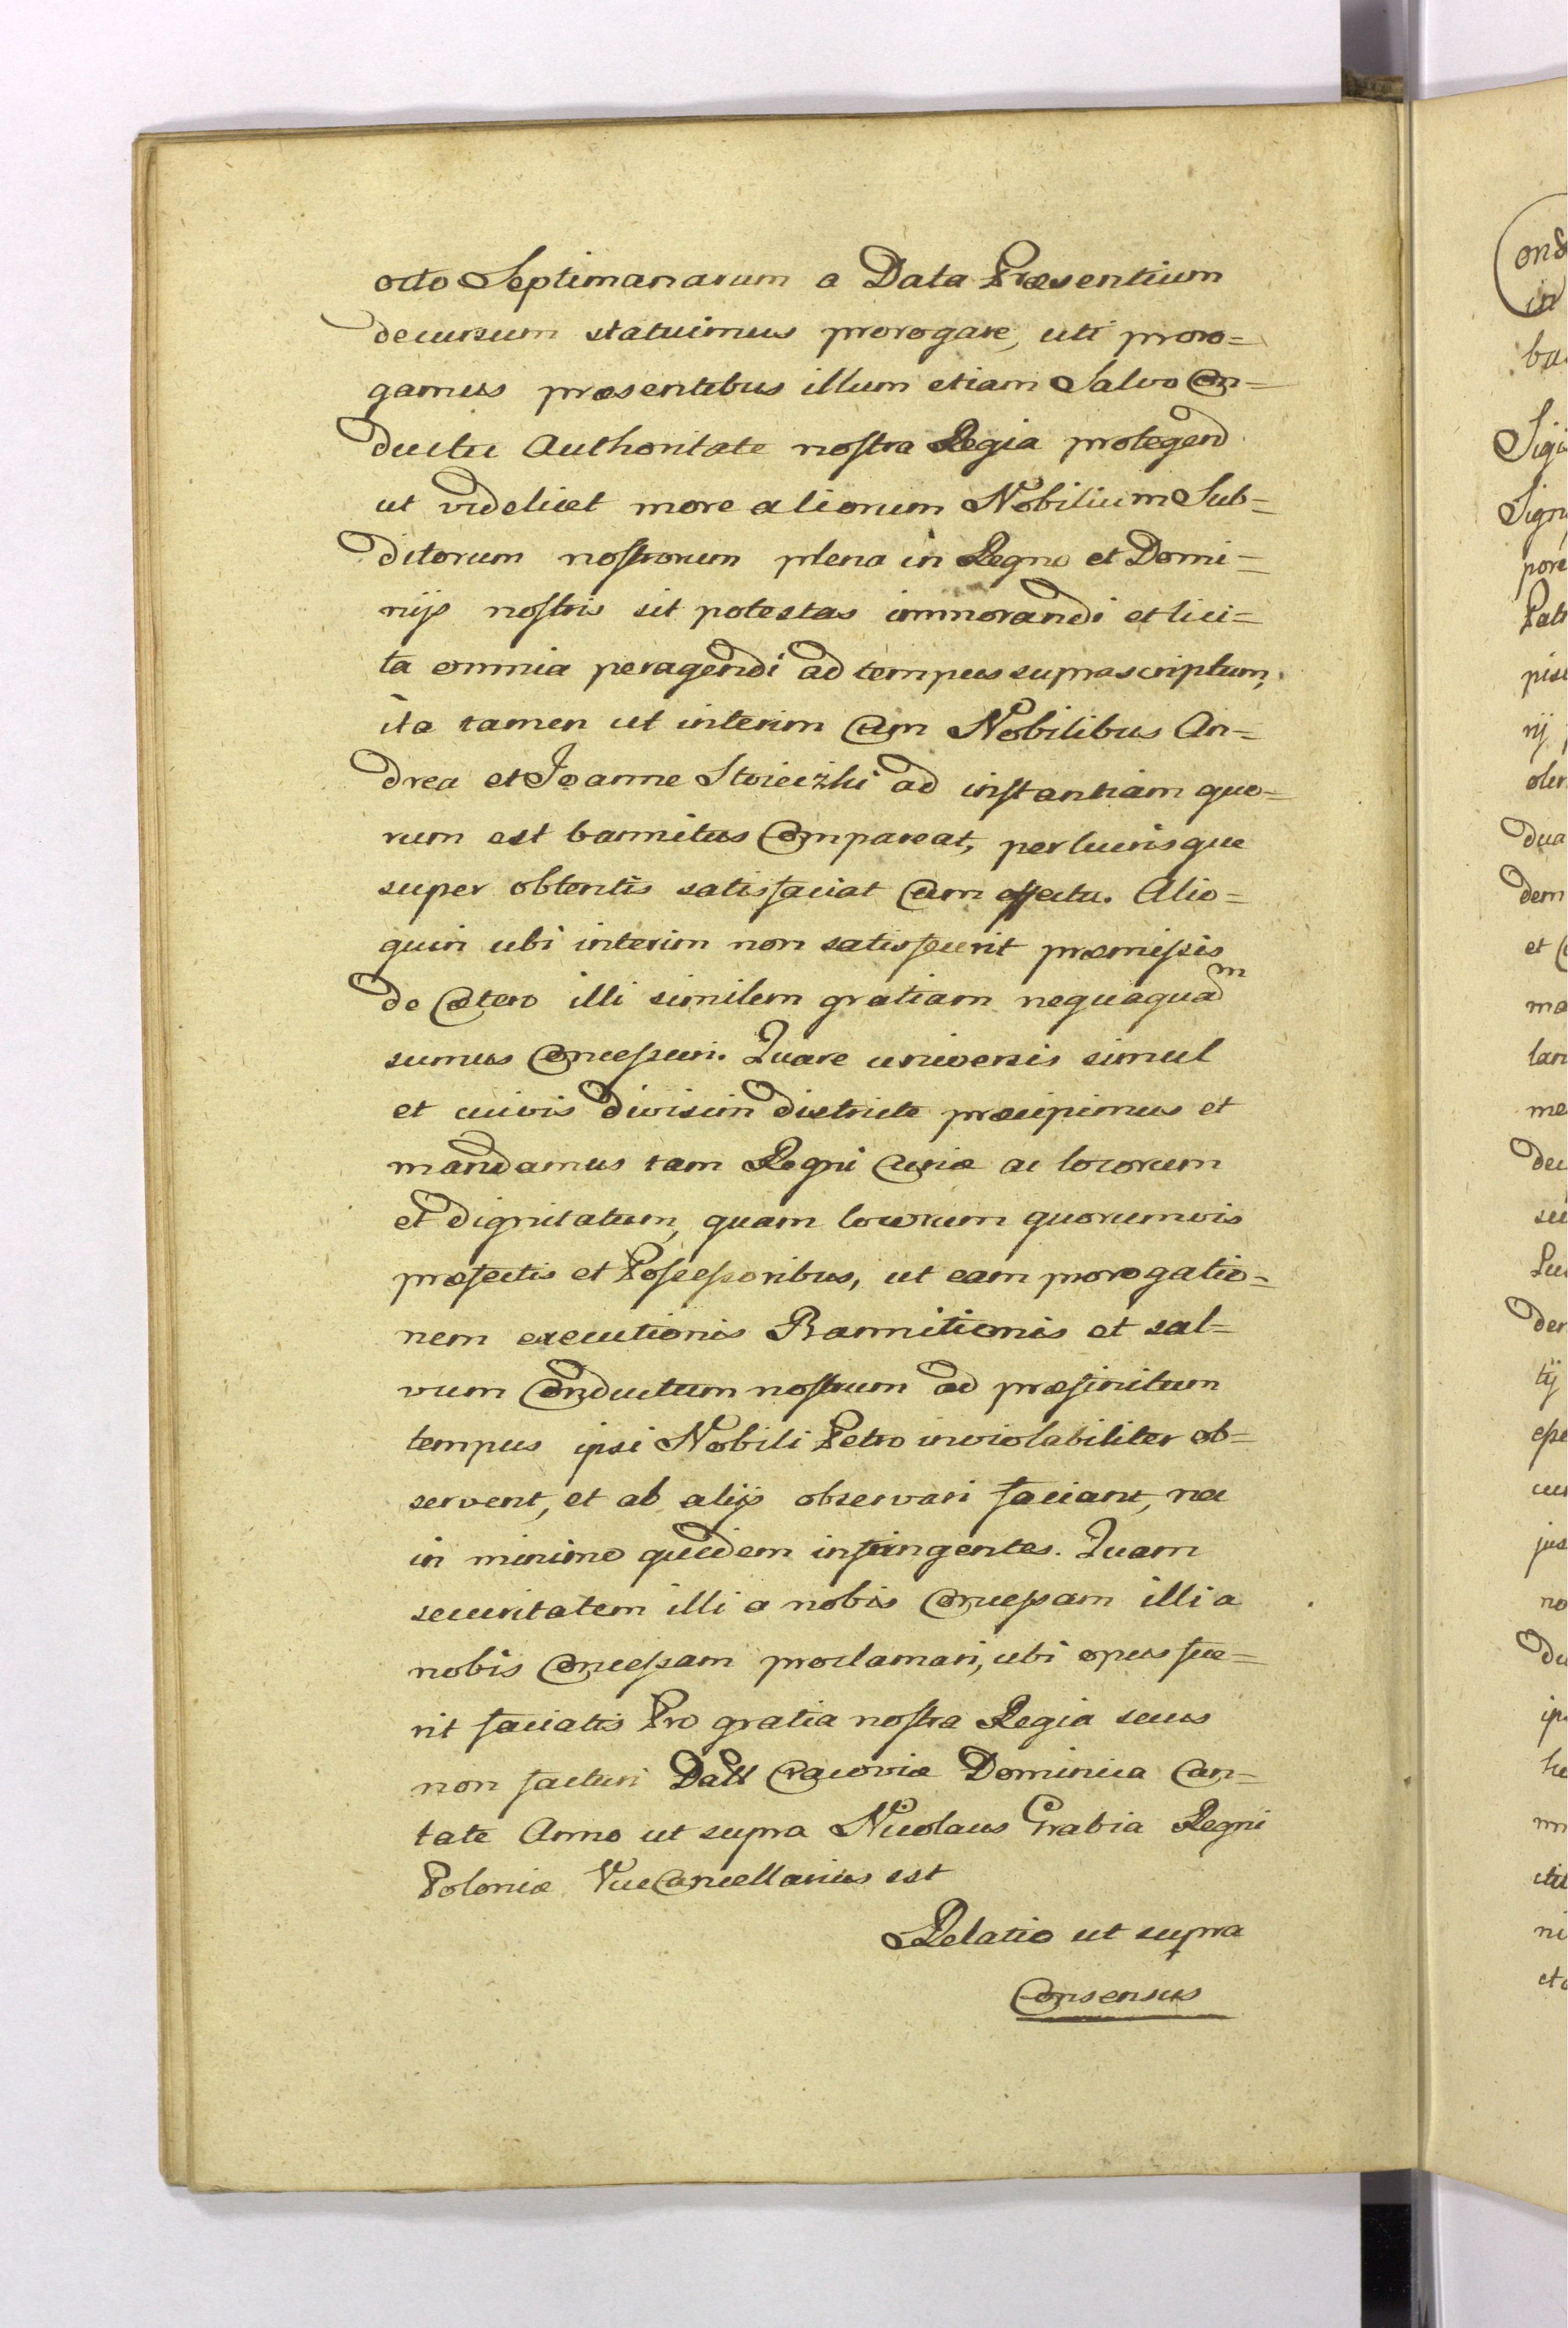 octo Septimanarum a Data Præsentium
decursum statuimus prorogare, uti proro=
gamus præsentibus illum etiam Salvo Con=
ductu Authoritate nostra Regia protegend
ut videlicet more aliorum Nobilium Sub=
ditorum nostrorum plena in Regno et Domi=
nijs nostris sit potestas immorandi et lici=
ta omnia peragendi ad tempus suprascriptum,
ita tamen ut interim Cum Nobilibus An=
drea et Joanne Stoieczki ad instantiam quo=
rum est bannitus Compareat, perlucrisque
super obtentis satisfaciat Cum effectu. Alio=
quin ubi interim non satisfecerit præmissis
de Cætero illi similem gratiam nequaquam
sumus Concessuri. Quare universis simul
et cuivis divisim districte præcipimus et
mandamus tam Regni Curiæ ac locorum
et dignitatum, quam locorum quorumvis
præfectis et Possessoribus, ut eam prorogatio=
nem executionis Bannitionis et sal=
vum Conductum nostrum ad præfinitum
tempus ipsi Nobili Petro inviolabiliter ob=
servent, et ab alijs observari faciant, nec
in minimo quidem infringentes. Quam
securitatem illi a nobis Concessam illi a
nobis Concessam proclamari, ubi opus fue=
rit faciatis Pro gratia nostra Regia secus
non facturi Datt Cracoviæ Dominica Can=
tate Anno ut supra Nicolaus Grabia Regni
Poloniæ ViceCancellarius sst
Relatio ut supra
Consensus